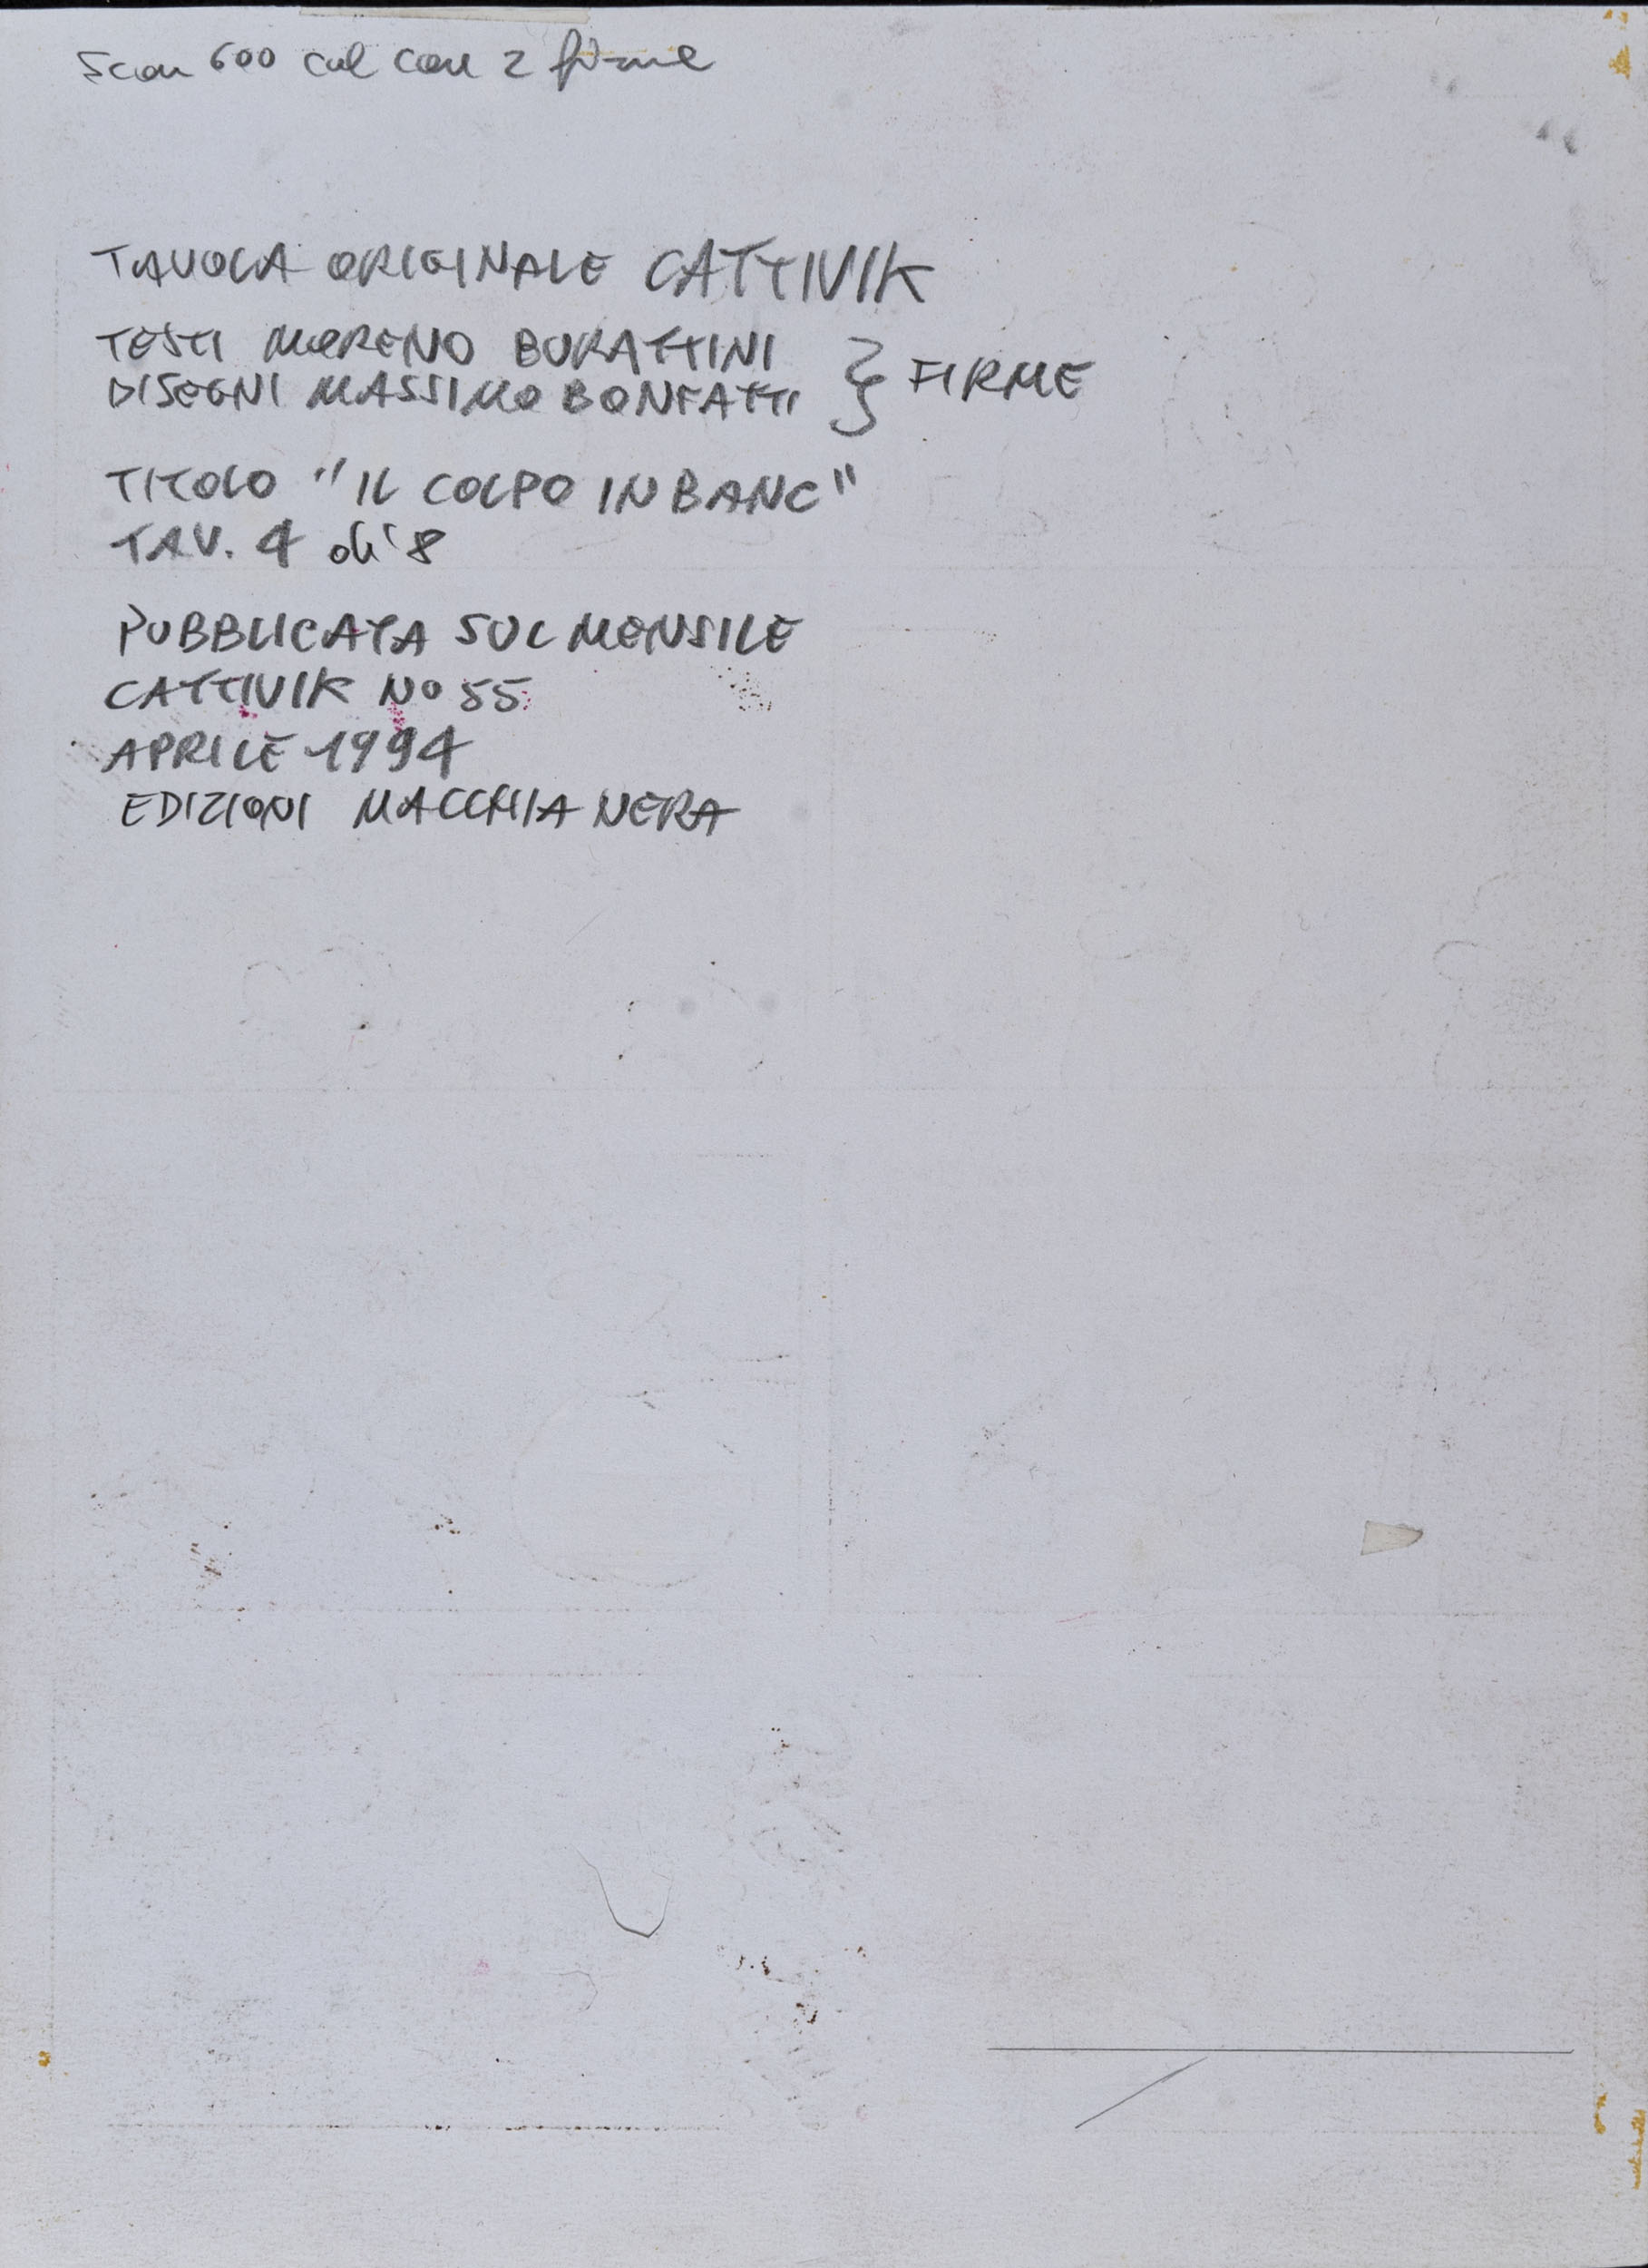 Scan 600 col con 2 firme
TAVOLA ORIGINALE CATTIVIK
TESTI MORENO BURATTINI
DISEGNI MASSIMO BONFATTI } FIRME
TITOLO "IL COLPO IN BANC"
TAV. 4 di 8
PUBBLICATA SUL MENSILE
CATTIVIK No 55
APRILE 1994
EDIZIONI MACCHIA NERA